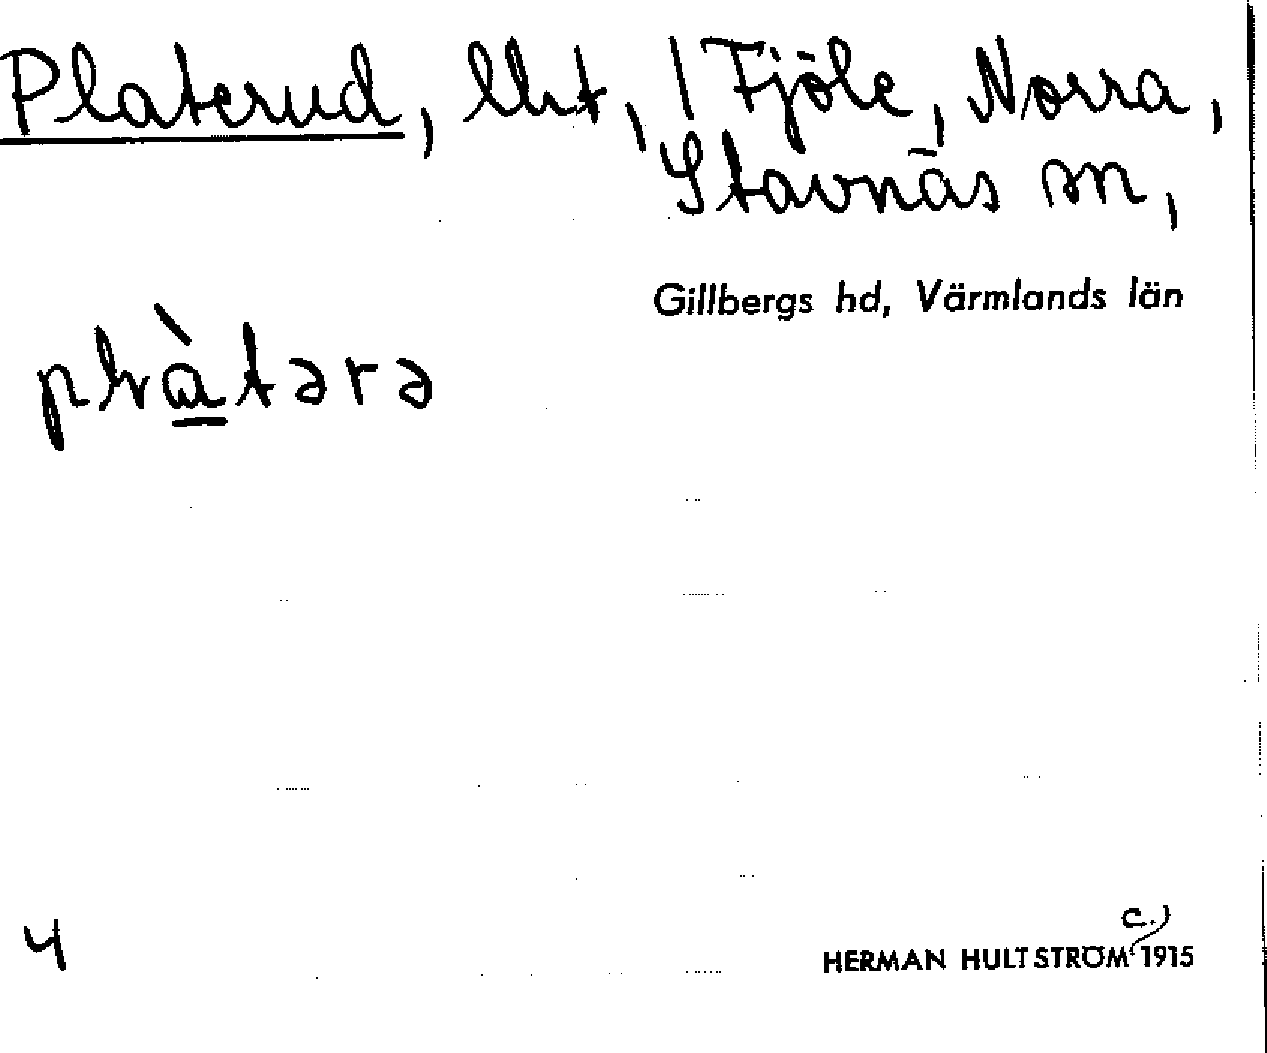 Platerud, lht, / Fjöle, Norra,
Stavnäs sn,
Gillbergs hd, Värmlands län
plàtərə
4
c.)
HERMAN HULTSTRÖM 1915